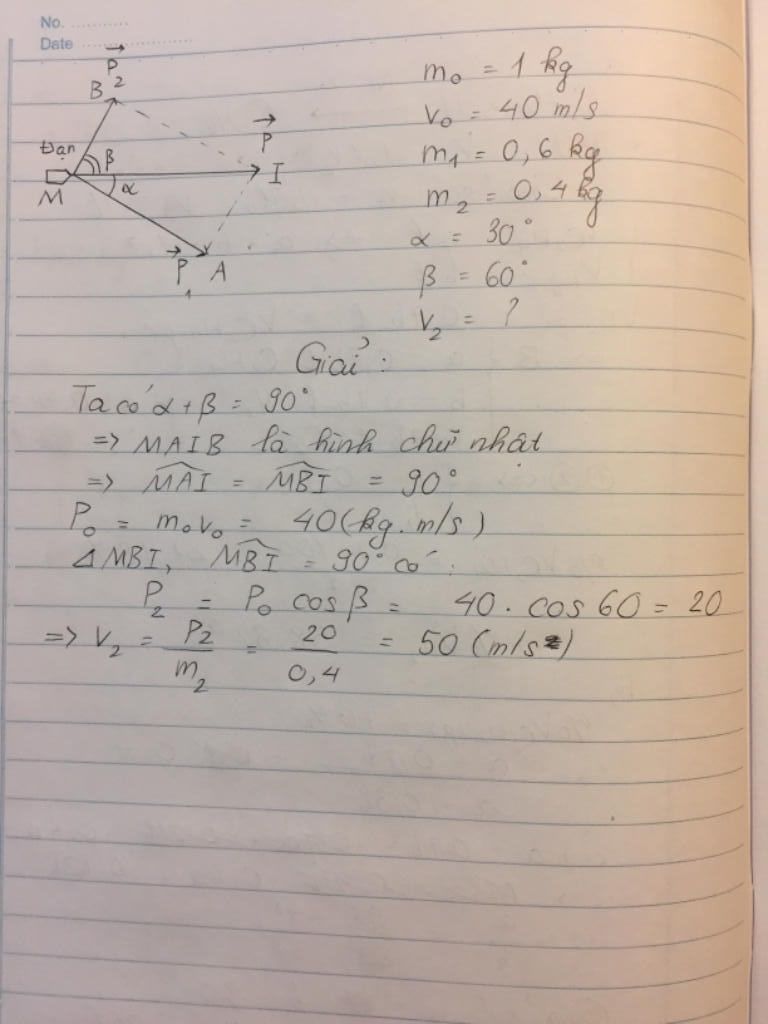 No. ............
Date ........................
P⃗
B 2
Đạn β P⃗
α I
M
P⃗ A
1
m₀ = 1 kg
v₀ = 40 m/s
m₁ = 0,6 kg
m₂ = 0,4 kg
α = 30°
β = 60°
V₂ = ?
Giải :
Ta có α + β = 90°
=> MAIB là hình chữ nhật
=> M̂AI = M̂BI = 90°
P₀ = m₀v₀ = 40 (kg.m/s)
△MBI, M̂BI = 90° có :
P₂ = P₀ cos β = 40 . cos 60 = 20
=> V₂ = P₂/m₂ = 20/0,4 = 50 (m/s)